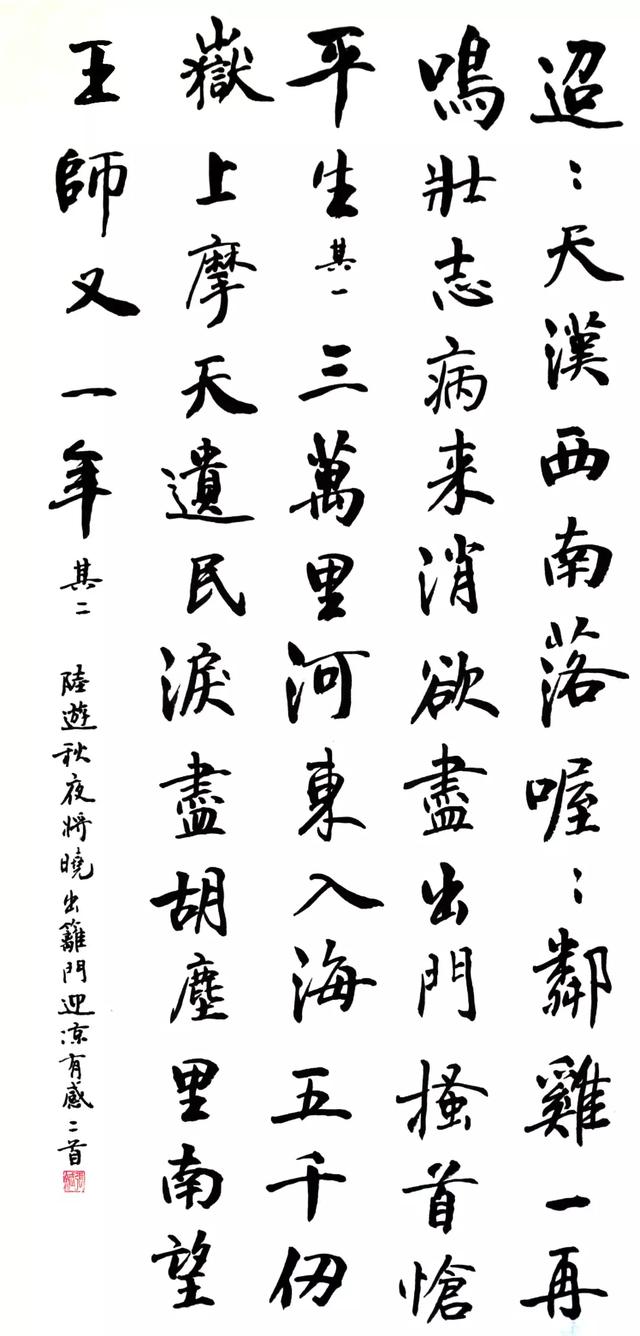 迢〻天漢西南落喔〻鄰雞一再
鳴壯志病来消欲盡出門搔首愴
平生其一三萬里河東入海五千仞
嶽上摩天遺民淚盡胡塵里南望
王師又一年其二
陸遊秋夜將曉出籬門迎凉有感二首